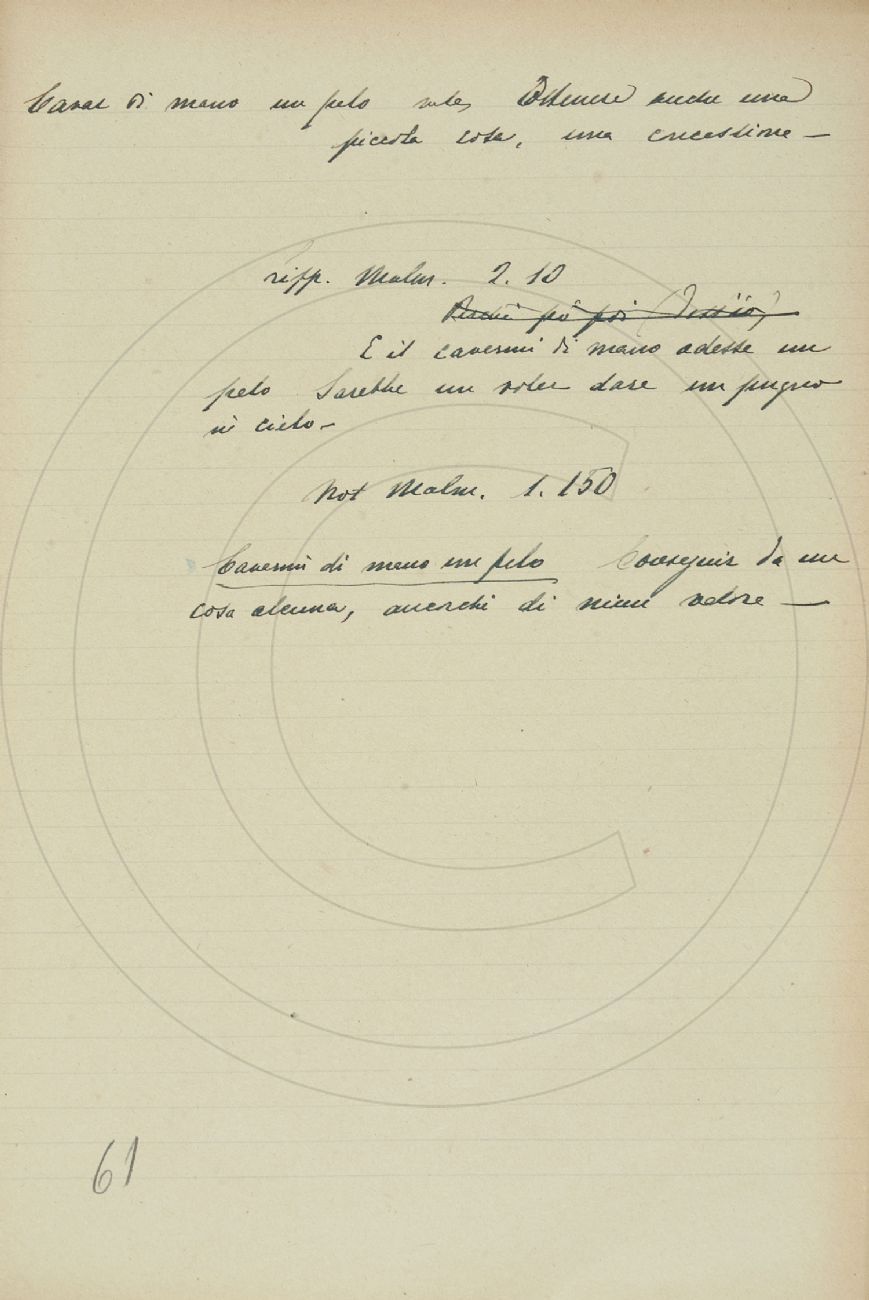 Cavar di mano un pelo vale, Ottenere anche una
piccola cosa, una concessione —
Lipp. Malm. 2. 10
poi
E il cavermi di mano adesso un
pelo Sarebbe un voler dare un pugno
in cielo —
Not Malm. 1. 150
Cavermi di mano un pelo Conseguir da me
cosa alcuna, ancorchè di niun valore —
61